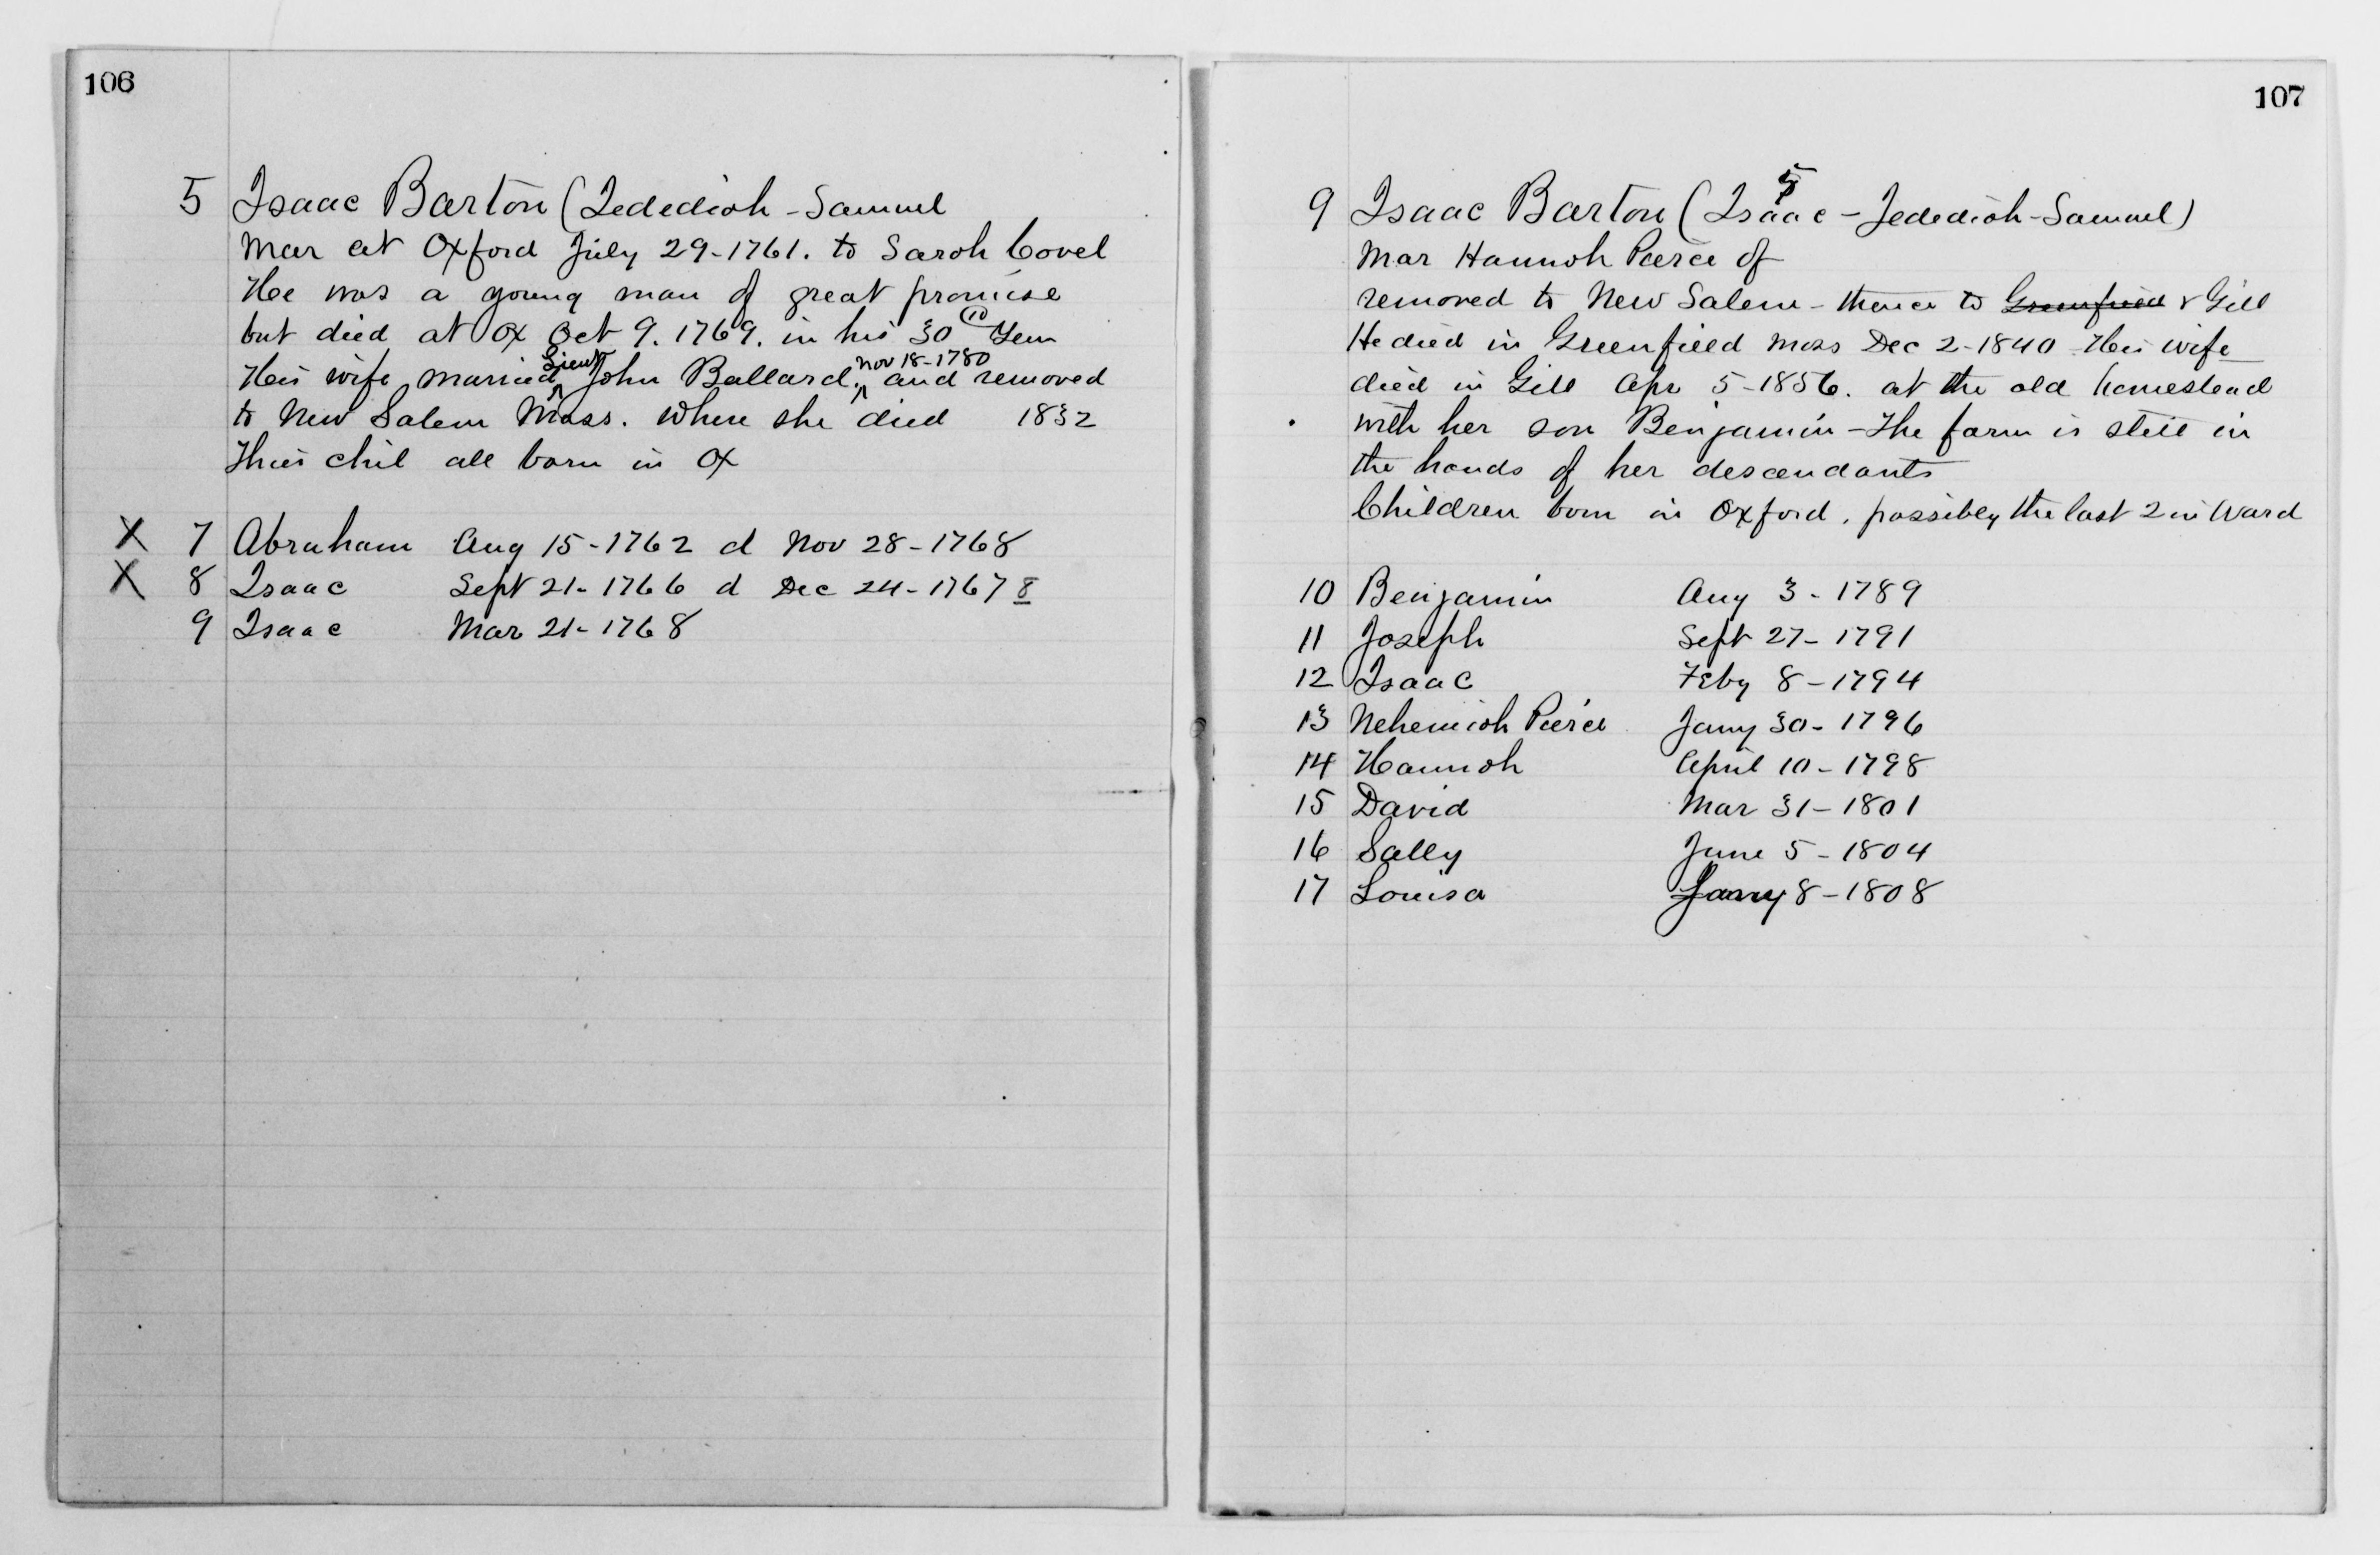 106
5 Isaac Barton (Jedediah - Samuel
Mar at Oxford July 29-1761. to Sarah Covel
He was a young man of great promise
but died at Ox Oct 9. 1769. in his 30 th Year
His wife married Lieut John Ballard. Nov 18-1780 and removed
to New Salem Mass. where she died 1832
Their chil all born in Ox
X 7 Abraham Aug 15-1762 d Nov 28-1768
X 8 Isaac Sept 21-1766 d Dec 24-1767 8
9 Isaac Mar 21-1768
107
9 Isaac Barton (Isaac 5 - Jedediah - Samuel)
Mar Hannah Peirce of
removed to New Salem - thence to Greenfield & Gill
He died in Greenfield Mass Dec 2-1840 His wife
died in Gill Apr 5-1856. at the old homestead
with her son Benjamin - The farm is still in
the hands of her descendants
Children born in Oxford, possibly the last 2 in Ward
10 Benjamin Aug 3-1789
11 Joseph Sept 27-1791
12 Isaac Feby 8-1794
13 Nehemiah Peirce Jany 30-1796
14 Hannah April 10-1798
15 David Mar 31-1801
16 Sally June 5-1804
17 Louisa Jany 8-1808